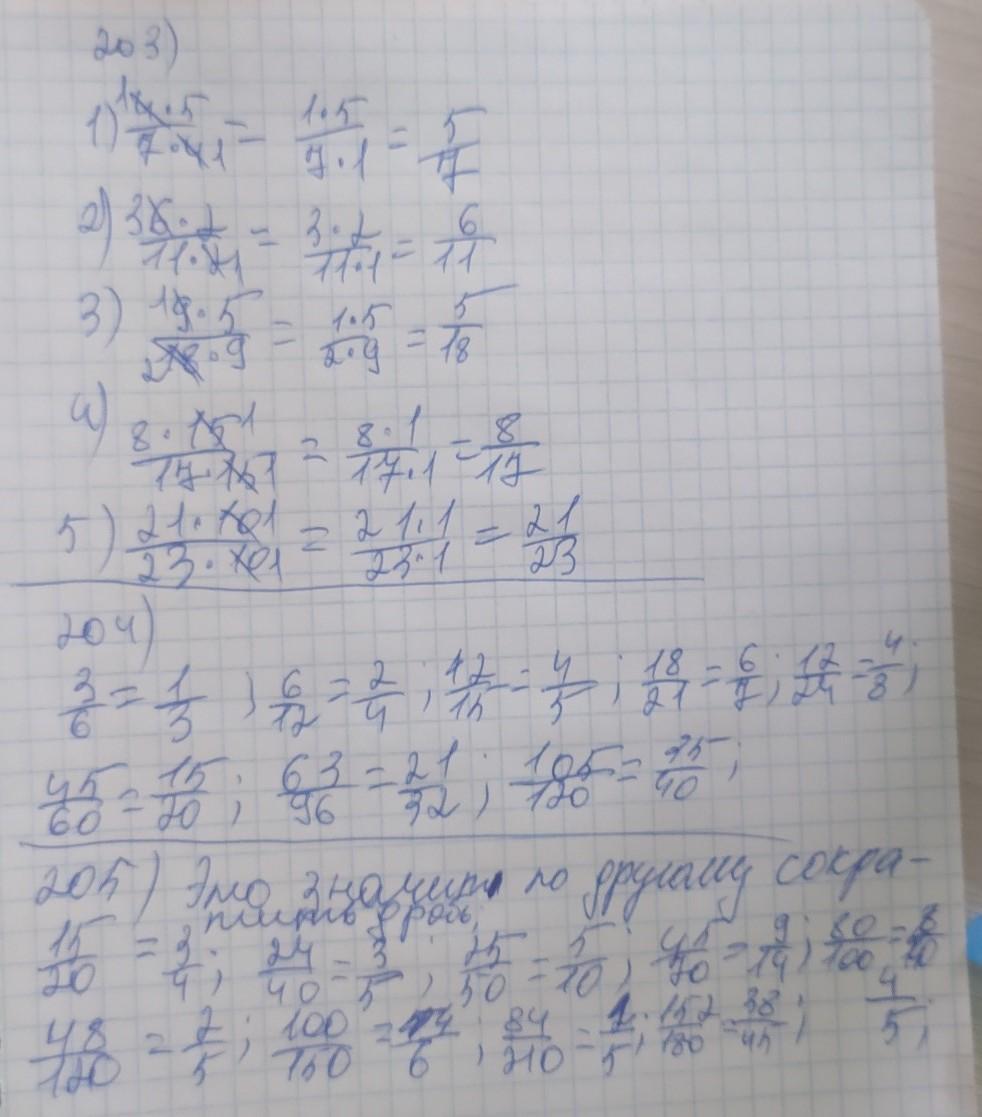 203)
1) 14·5/7·41 = 1·5/7·1 = 5/7
2) 36·2/11·21 = 3·2/11·1 = 6/11
3) 19·5/218·9 = 1·5/2·9 = 5/18
4) 8·151/17·151 = 8·1/17·1 = 8/17
5) 21·101/23·101 = 21·1/23·1 = 21/23
204)
3/6 = 1/3 ; 6/12 = 2/4 ; 12/15 = 4/5 ; 18/21 = 6/7 ; 12/24 = 4/8 ;
45/60 = 15/20 ; 63/96 = 21/32 ; 105/120 = 35/40 ;
205) Это значит по другому сокра-
тить дробь;
15/20 = 3/4 ; 24/40 = 3/5 ; 25/50 = 5/10 ; 45/70 = 9/14 ; 80/100 = 8/10
4/5 ;
48/120 = 2/5 ; 100/150 = 4/6 ; 84/210 = 2/5 ; 152/180 = 38/45 ;